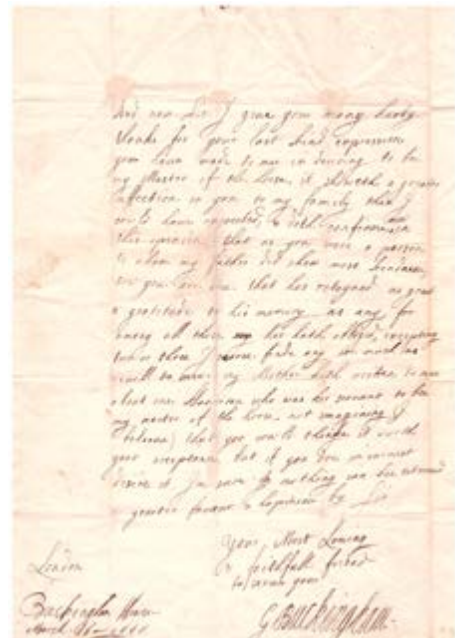 And now Sir I give you many hearty
thanks for your last kind expressions
you have made to me in desiring to be
my Master of the horse, it sheweth a greater
affection in you to my family than I
could have expected, & doth confirme me in
this opinion that as you were a person
to whom my father did shew most kindness
so you are one that hes retayned as great
a gratitude to his memory as any, for
among all those he hath obliged, excepting
two or three I finde any so much
my Mother hath written to mee
about one who was his servant to bee
my master of the horse, not imagining I
beleeve that you would thinke it worth
your acceptance but if you doe in earnest
desire it I'm sure nothing can bee
greater by Sir
Your Most Loving
& faithfull friend
to serve you
G Buckingham
London
Buckingham House
March